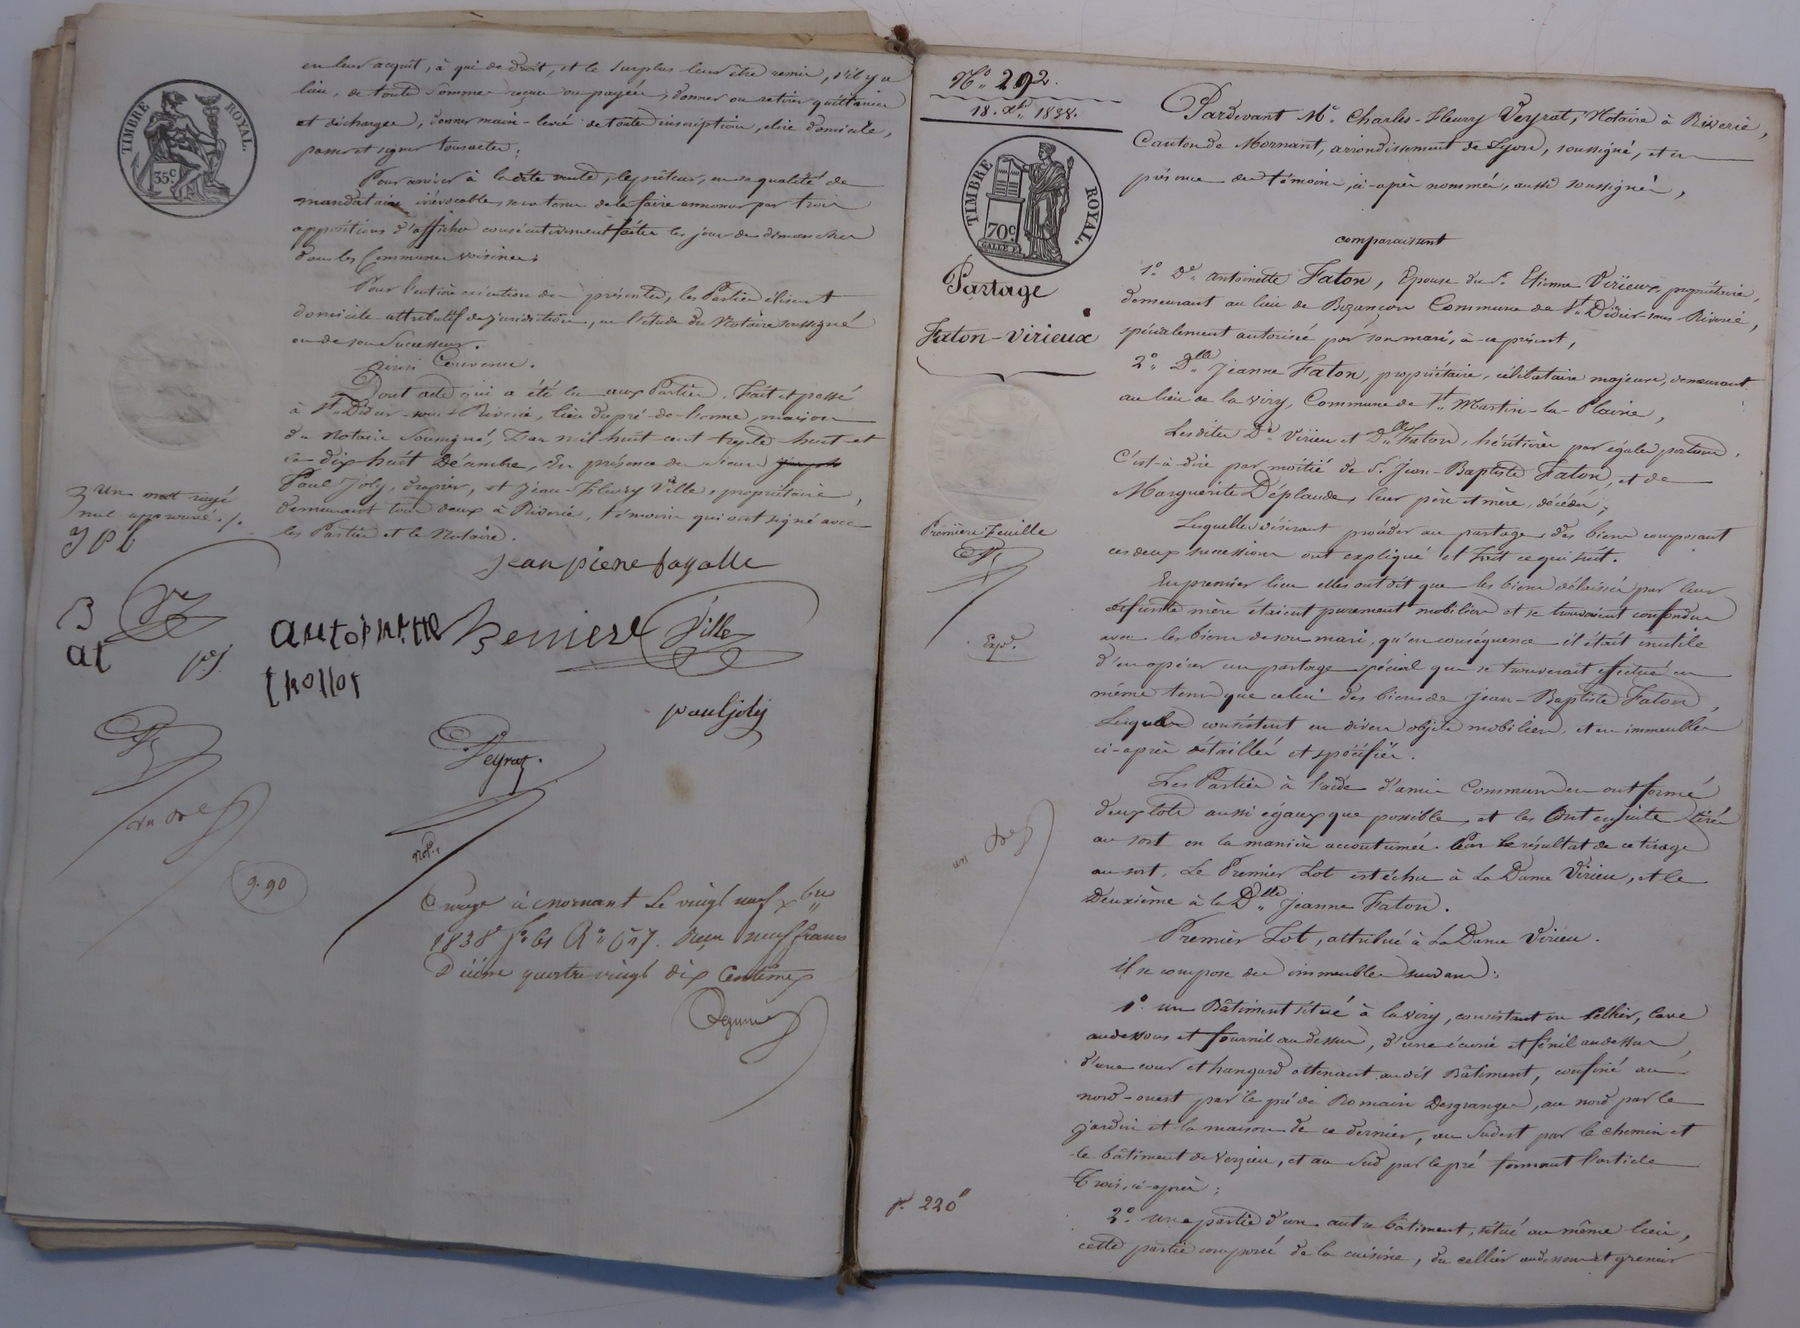 TIMBRE ROYAL.
35c
en leur acquit, à qui de droit, et le surplus leur être remis, s'il y a
lieu, de toute somme reçue ou payée, donner ou retirer quittances
et décharges, donner main-levée de toute inscription, élire domicile,
passer et signer tous actes;
Pour arriver à la dite vente, le prêteur, en sa qualité de
mandataire irrévocable, sera tenu de la faire annoncer par trois
appositions d'affiches consécutivement faites les jours de dimanches
dans les Communes voisines;
Pour l'entière exécution des présentes, les Parties élisent
domicile attributif de juridiction, en l'étude du Notaire soussigné
ou de son Successeur.
Ainsi Convenu.
Dont acte qui a été lu aux Parties. Fait et passé
à St. Didier-sous-Riverie, lieu du pré-de-l'orme, maison
du Notaire Soussigné, L'an mil huit cent trente huit et
le dix huit Décembre, En présence de sieurs
Paul Joly, drapier, et Jean-Fleury Ville, propriétaire,
demeurant tous deux à Riverie, témoins qui ont signé avec
les Parties et le Notaire.
un mot rayé
nul approuvé ./.
J P b
jean piere fayolle
antoinette
Ville
at
p.j.
thollot
paul joly
Veyrat.
Not.re
9.90
Enregé à Mornant Le vingt neuf xbre
1838 fo 61 Ro. Reçu neuf francs
Dixième quatre vingt dix Centimes
No. 292.
18. Xbre. 1838.
TIMBRE ROYAL.
70c
Partage
Faton-Virieux
Première Feuille
Exp.
Pardevant Me. Charles-Fleury Veyrat, Notaire à Riverie,
Canton de Mornant, arrondissement de Lyon, soussigné, et en
présence des témoins, ci-après nommés, aussi soussignés,
comparaissent
1o. De. Antoinette Faton, Epouse du Sr. Etienne Virieux, propriétaire,
demeurant au lieu de Bozançon Commune de St. Didier-sous-Riverie,
spécialement autorisée par son mari, à ce présent,
2o. Dlle. Jeanne Faton, propriétaire, célibataire majeure, demeurant
au lieu de la viry, Commune de St. Martin-la-Plaine,
Lesdites De. Virieu et Dlle. Faton, héritières par égales portions,
C'est-à-dire par moitié de S. Jean-Baptiste Faton, et de
Marguerite Déplaude, leur père et mère, décédés;
Lesquelles désirant procéder au partage des biens composant
ces deux successions ont expliqué et fait ce qui suit.
En premier lieu elles ont dit que les biens délaissés par leur
défunte mère étaient purement mobiliers et se trouvaient confondus
avec les biens de son mari, qu'en conséquence il était inutile
d'en opérer un partage spécial qui se trouverait effectué en
même tems que celui des biens de Jean-Baptiste Faton,
Lesquels consistent en divers objets mobiliers, et en immeubles
ci-après détaillés et spécifiés.
Les Parties à l'aide d'amis Communs en ont formé
deux lots aussi égaux que possible, et les Ont ensuite tirés
au sort en la manière accoutumée. Par le résultat de ce tirage
au sort, Le Premier Lot est échu à La Dame Virieu, et le
Deuxième à la Dlle. Jeanne Faton.
Premier Lot, attribué à La Dame Virieu.
il se compose des immeubles suivans:
1o. un Bâtiment situé à la viry, consistant en cellier, cave
au dessous et fournil au dessus, d'une écurie et fénil au dessus,
d'une cour et hangard attenant audit Bâtiment, confiné au
nord-ouest par le pré de Romain Desgranges, au nord par le
jardin et la maison de ce dernier, au Sudest par le chemin et
le bâtiment de Verzieu, et au Sud par le pré formant l'article
Trois, ci-après;
220
2o. une partie d'un autre bâtiment, situé au même lieu,
cette partie composée de la cuisine, du cellier au dessous et grenier